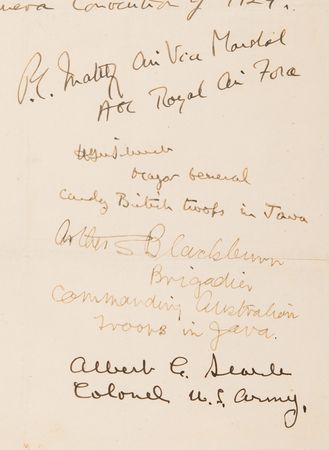 Geneva Convention of 1929.
P.C. Maltby Air Vice Marshal
AOC Royal Air Force
Major General
Comdg British troops in Java
Arthur S Blackburn
Brigadier
Commanding Australian
Troops in Java.
Albert C. Searle
Colonel U.S. Army.